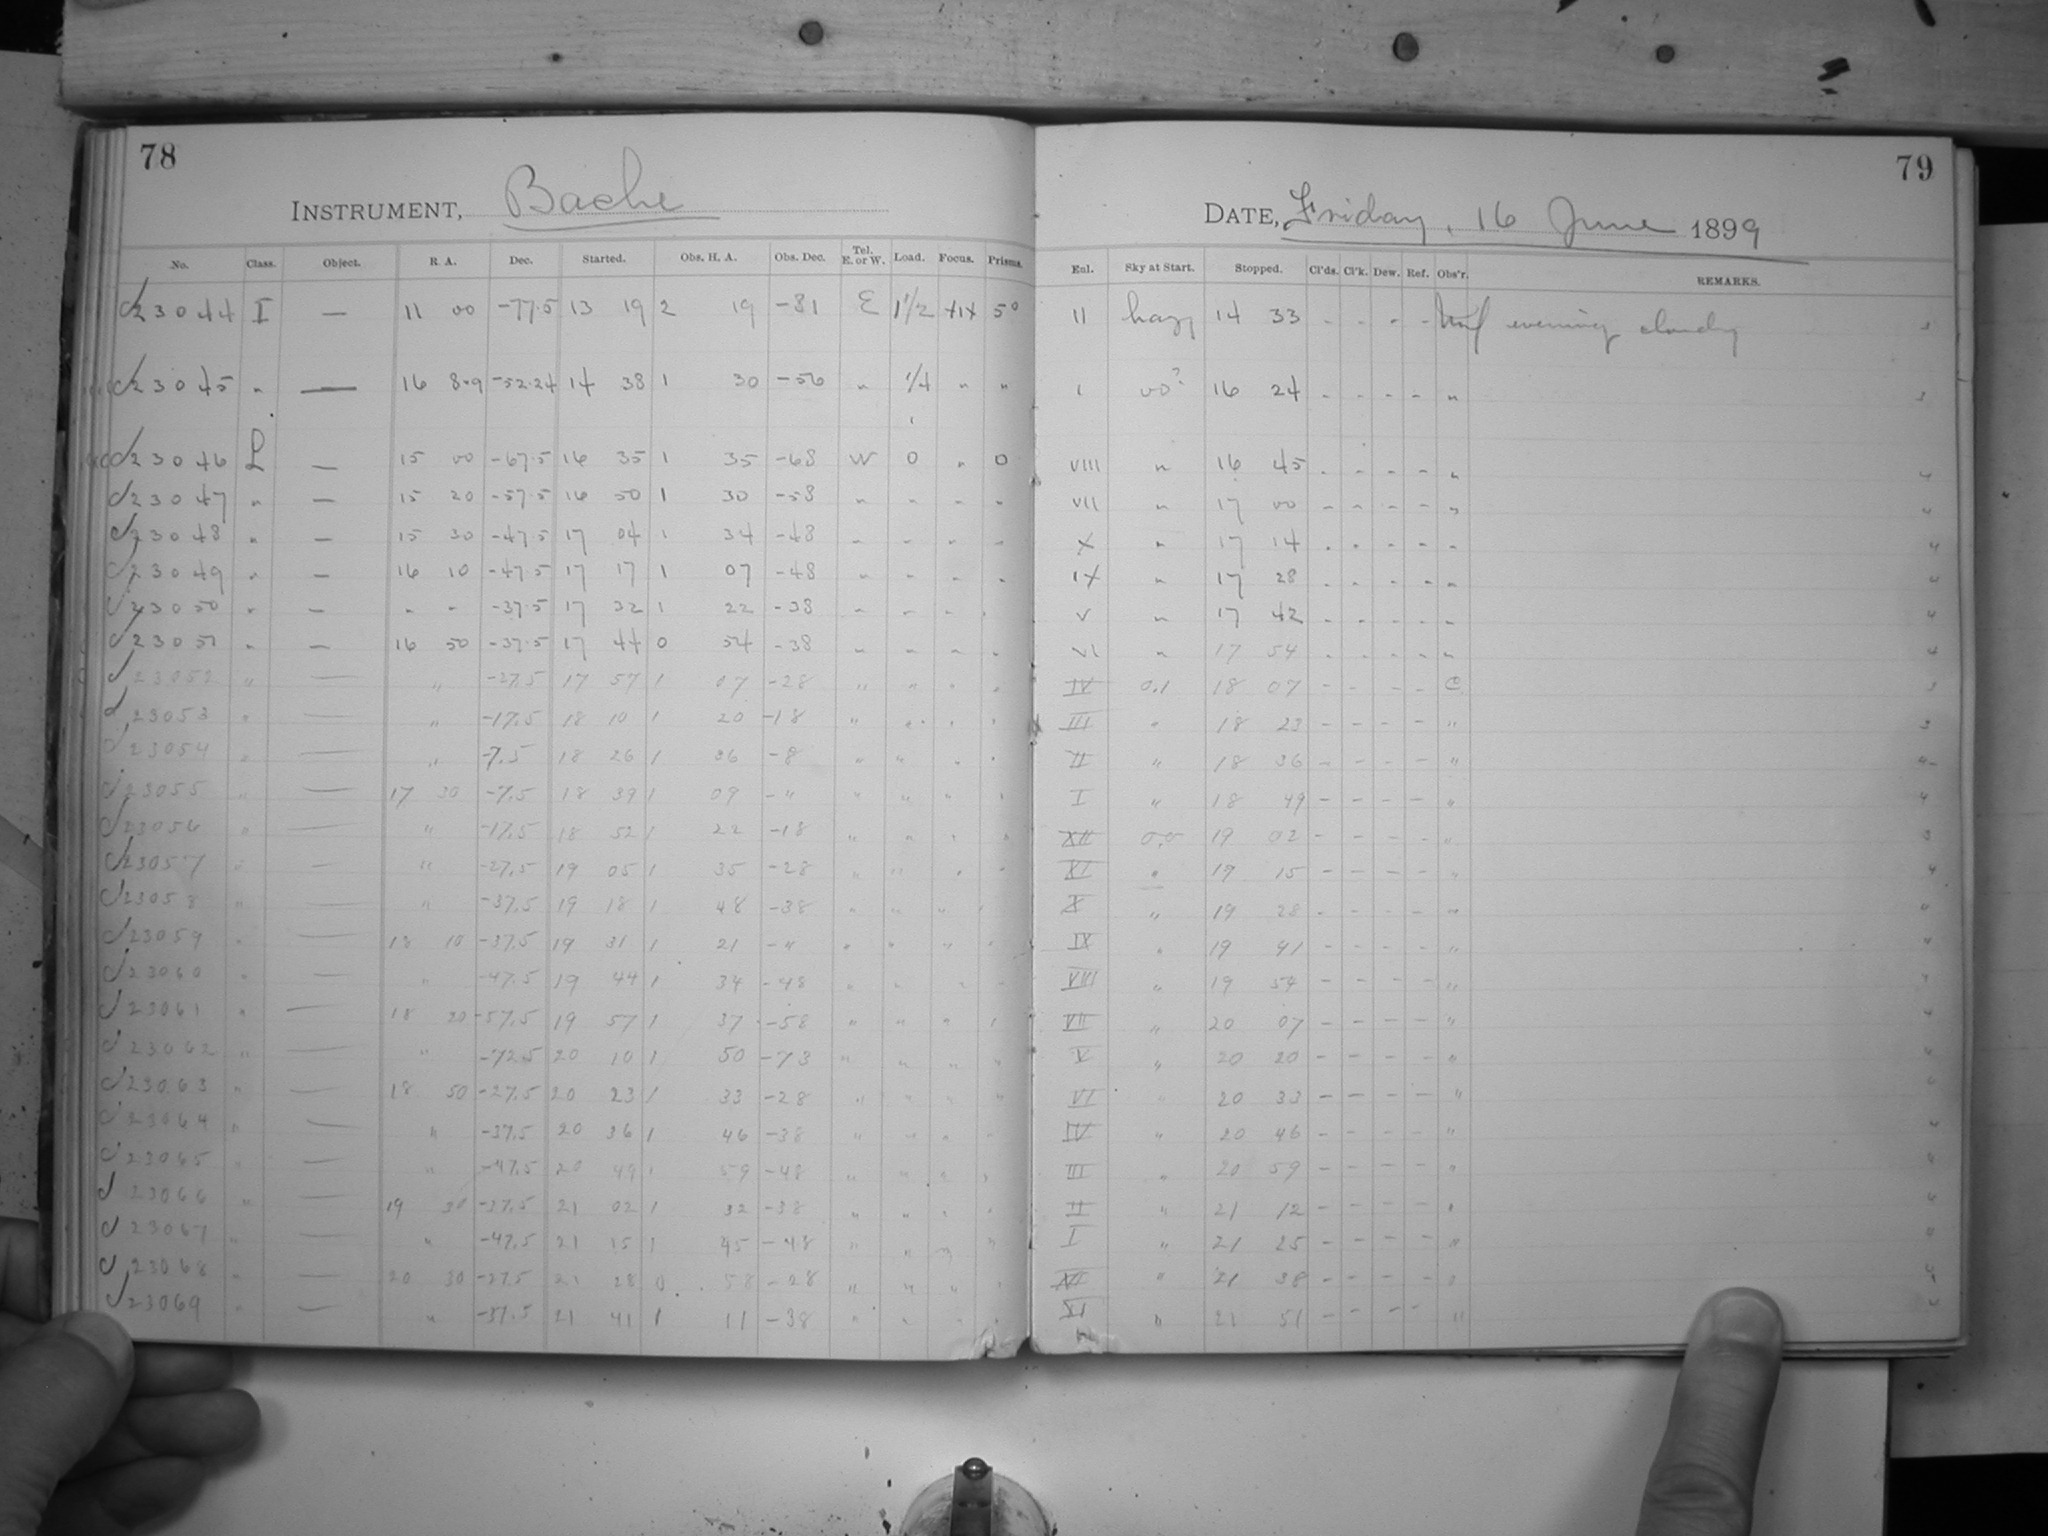 78
INSTRUMENT, Bache
No. Class. Object. R. A. Dec. Started. Obs. H. A. Obs. Dec. Tel. E. or W. Load. Focus. Prisms.
23044 I — 11 00 -77.5 13 19 2 19 -81 E 1 1/2 5°
23045 " — 16 8.9 -52.24 14 38 1 30 -56 " 1/4 " "
23046 L — 15 00 -67.5 16 35 1 35 -68 W 0 " 0
23047 " — 15 20 -57.5 16 50 1 30 -58 " " " "
23048 " — 15 30 -47.5 17 04 1 34 -48 " " " "
23049 " — 16 10 -47.5 17 17 1 07 -48 " " " "
23050 " — " " -37.5 17 32 1 22 -38 " " " "
23051 " — 16 50 -37.5 17 44 0 54 -38 " " " "
23052 " — " -27.5 17 57 1 07 -28 " " " "
23053 " — " -17.5 18 10 1 20 -18 " " " "
23054 " — " -7.5 18 26 1 36 -8 " " " "
23055 " — 17 30 -7.5 18 39 1 09 -" " " " "
23056 " — " -17.5 18 52 1 22 -18 " " " "
23057 " — " -27.5 19 05 1 35 -28 " " " "
23058 " — " -37.5 19 18 1 48 -38 " " " "
23059 " — 18 10 -37.5 19 31 1 21 -" " " " "
23060 " — " -47.5 19 44 1 34 -48 " " " "
23061 " — 18 20 -57.5 19 57 1 37 -58 " " " "
23062 " — " -72.5 20 10 1 50 -73 " " " "
23063 " — 18 50 -27.5 20 23 1 33 -28 " " " "
23064 " — " -37.5 20 36 1 46 -38 " " " "
23065 " — " -47.5 20 49 1 59 -48 " " " "
23066 " — 19 30 -37.5 21 02 1 32 -38 " " " "
23067 " — " -47.5 21 15 1 45 -48 " " " "
23068 " — 20 30 -27.5 21 28 0 58 -28 " " " "
23069 " — " -37.5 21 41 1 11 -38 " " " "
79
DATE, Friday, 16 June 1899
Enl. Sky at Start. Stopped. Cl'ds. Cl'k. Dew. Ref. Obs'r. REMARKS.
II hazy 14 33 - - - - evening cloudy
I 00? 16 24 - - - - "
VIII " 16 45 - - - - "
VII " 17 00 - - - - "
X " 17 14 - - - - "
IX " 17 28 - - - - "
V " 17 42 - - - - "
VI " 17 54 - - - - "
IV 0.1 18 07 - - - - C
III " 18 23 - - - - "
II " 18 36 - - - - "
I " 18 49 - - - - "
XII 0.0 19 02 - - - - "
XI " 19 15 - - - - "
X " 19 28 - - - - "
IX " 19 41 - - - - "
VIII " 19 54 - - - - "
VII " 20 07 - - - - "
V " 20 20 - - - - "
VI " 20 33 - - - - "
IV " 20 46 - - - - "
III " 20 59 - - - - "
II " 21 12 - - - - "
I " 21 25 - - - - "
XII " 21 38 - - - - "
XI " 21 51 - - - - "